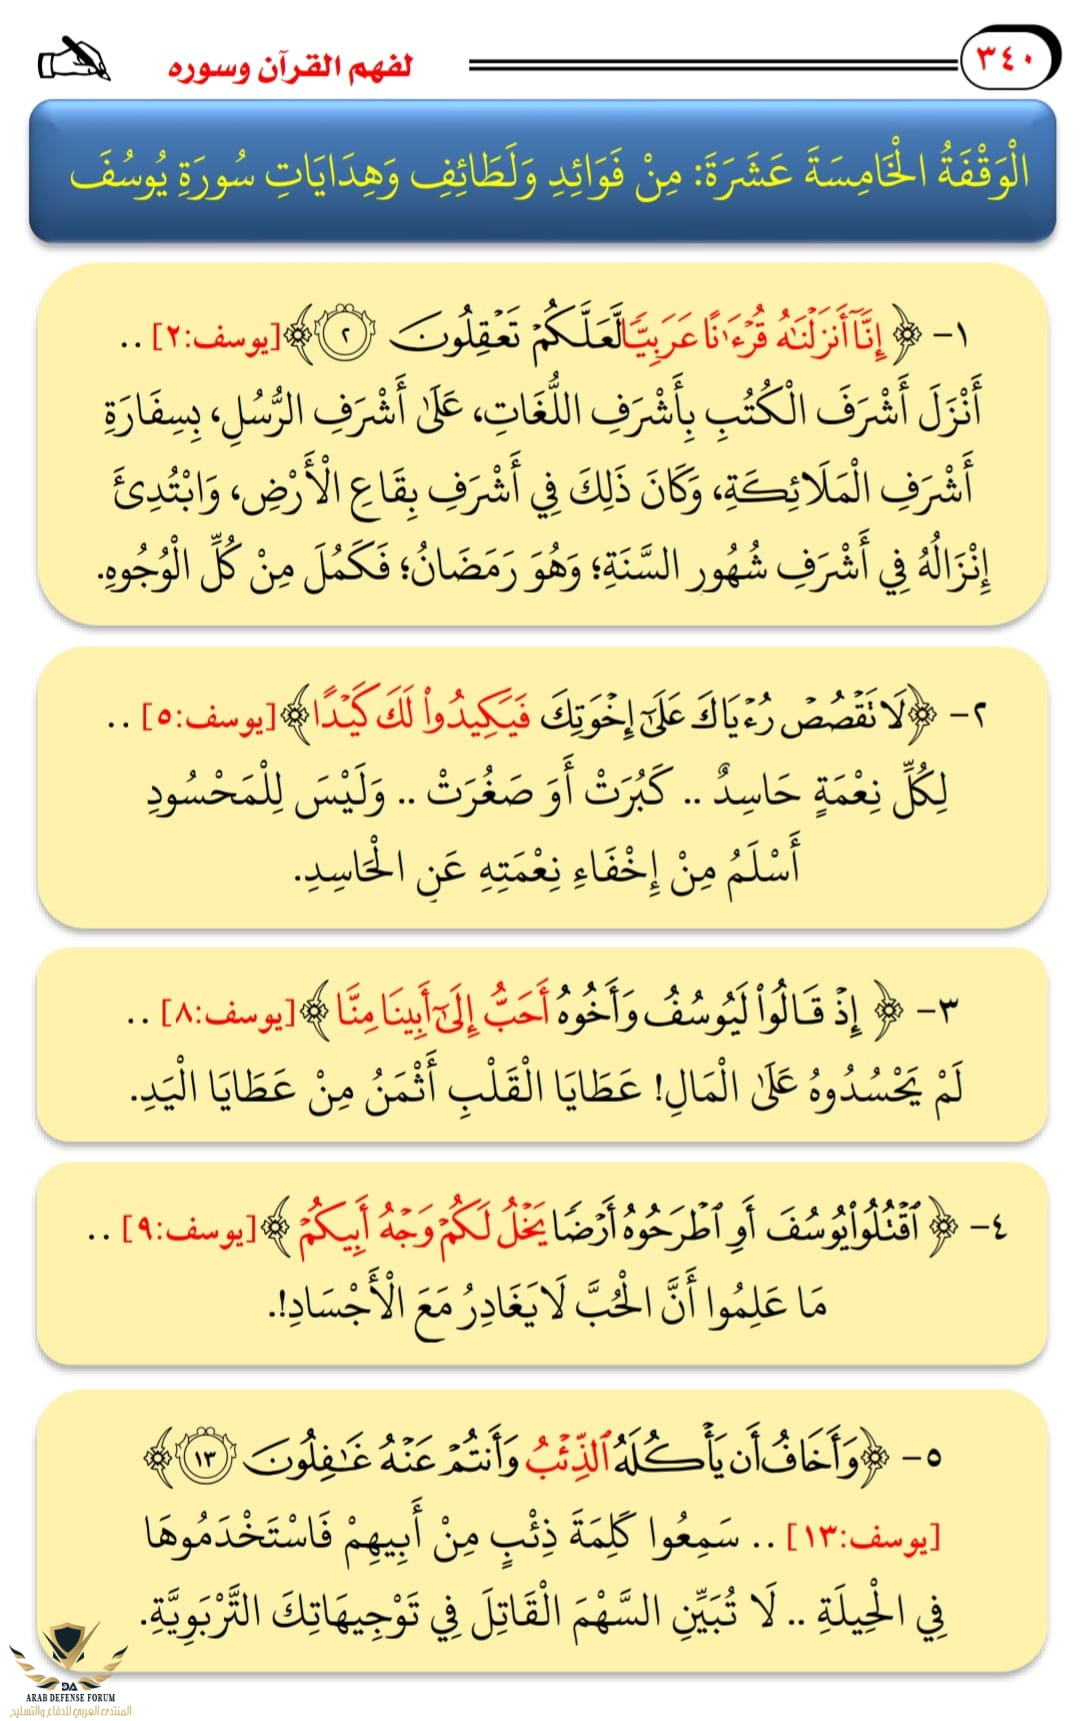 ٣٤٠
لفهم القرآن وسوره
الْوَقْفَةُ الْخَامِسَةَ عَشَرَةَ: مِنْ فَوَائِدِ وَلَطَائِفِ وَهِدَايَاتِ سُورَةِ يُوسُفَ
١- ﴿ إِنَّآ أَنزَلْنَٰهُ قُرْءَٰنًا عَرَبِيًّا لَّعَلَّكُمْ تَعْقِلُونَ ٢ ﴾ [يوسف:٢] ..
أَنْزَلَ أَشْرَفَ الْكُتُبِ بِأَشْرَفِ اللُّغَاتِ، عَلَىٰ أَشْرَفِ الرُّسُلِ، بِسِفَارَةِ
أَشْرَفِ الْمَلَائِكَةِ، وَكَانَ ذَلِكَ فِي أَشْرَفِ بِقَاعِ الْأَرْضِ، وَابْتُدِئَ
إِنْزَالُهُ فِي أَشْرَفِ شُهُورِ السَّنَةِ؛ وَهُوَ رَمَضَانُ؛ فَكَمُلَ مِنْ كُلِّ الْوُجُوهِ.
٢- ﴿لَا تَقْصُصْ رُءْيَاكَ عَلَىٰٓ إِخْوَتِكَ فَيَكِيدُوا۟ لَكَ كَيْدًا﴾ [يوسف:٥] ..
لِكُلِّ نِعْمَةٍ حَاسِدٌ .. كَبُرَتْ أَوَ صَغُرَتْ .. وَلَيْسَ لِلْمَحْسُودِ
أَسْلَمُ مِنْ إِخْفَاءِ نِعْمَتِهِ عَنِ الْحَاسِدِ.
٣- ﴿ إِذْ قَالُوا۟ لَيُوسُفُ وَأَخُوهُ أَحَبُّ إِلَىٰٓ أَبِينَا مِنَّا ﴾ [يوسف:٨] ..
لَمْ يَحْسُدُوهُ عَلَىٰ الْمَالِ! عَطَايَا الْقَلْبِ أَثْمَنُ مِنْ عَطَايَا الْيَدِ.
٤- ﴿ ٱقْتُلُوا۟ يُوسُفَ أَوِ ٱطْرَحُوهُ أَرْضًا يَخْلُ لَكُمْ وَجْهُ أَبِيكُمْ ﴾ [يوسف:٩] ..
مَا عَلِمُوا أَنَّ الْحُبَّ لَا يَغَادِرُ مَعَ الْأَجْسَادِ!.
٥- ﴿وَأَخَافُ أَن يَأْكُلَهُ ٱلذِّئْبُ وَأَنتُمْ عَنْهُ غَٰفِلُونَ ١٣ ﴾
[يوسف:١٣] .. سَمِعُوا كَلِمَةَ ذِئْبٍ مِنْ أَبِيهِمْ فَاسْتَخْدَمُوهَا
فِي الْحِيلَةِ .. لَا تُبَيِّنِ السَّهْمَ الْقَاتِلَ فِي تَوْجِيهَاتِكَ التَّرْبَوِيَّةِ.
DA
ARAB DEFENSE FORUM
المنتدى العربي للدفاع والتسليح